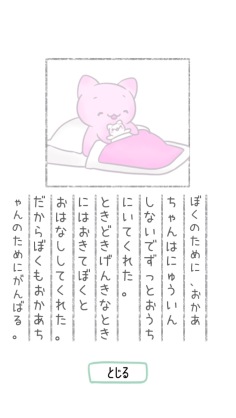 ぼくのために、おかあ
ちゃんはにゅういん
しないでずっとおうち
にいてくれた。
ときどきげんきなとき
にはおきてぼくと
おはなししてくれた。
だからぼくもおかあち
ゃんのためにがんばる。
とじる